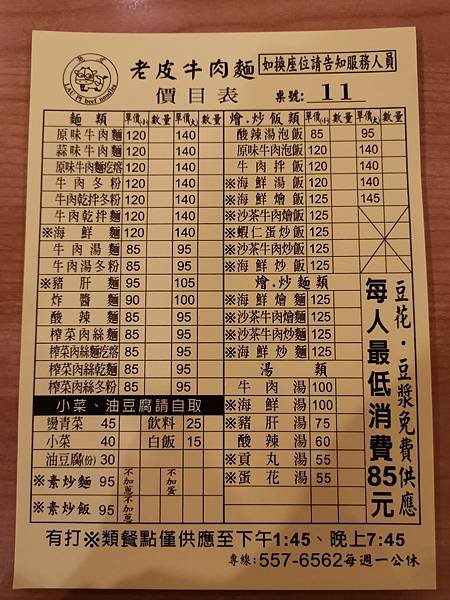 老皮
LAU PI beef noodles
老皮牛肉麵
如換座位請告知服務人員
價目表
桌號: 11
麵類 單價小 數量 單價大 數量
原味牛肉麵 120 140
蒜味牛肉麵 120 140
原味牛肉麵疙瘩 120 140
牛肉冬粉 120 140
牛肉乾拌冬粉 120 140
牛肉乾拌麵 120 140
※海鮮麵 120 140
牛肉湯麵 85 95
牛肉湯冬粉 85 95
※豬肝麵 95 105
炸醬麵 90 100
酸辣麵 85 95
榨菜肉絲麵 85 95
榨菜肉絲麵疙瘩 85 95
榨菜肉絲乾麵 85 95
榨菜肉絲冬粉 85 95
小菜、油豆腐請自取
燙青菜 45 飲料 25
小菜 40 白飯 15
油豆腐(份) 30
※素炒麵 95 不加蔥 不加蛋
※素炒飯 95 不加蔥
燴.炒飯類 單價小 數量 單價大 數量
酸辣湯泡飯 85 95
原味牛肉泡飯 120 140
牛肉拌飯 120 140
※海鮮湯飯 120 140
※海鮮燴飯 125 145
※沙茶牛肉燴飯 125
※蝦仁蛋炒飯 125
※沙茶牛肉炒飯 125
※海鮮炒飯 125
燴.炒麵類
※海鮮燴麵 125
※沙茶牛肉燴麵 125
※沙茶牛肉炒麵 125
※海鮮炒麵 125
湯類
牛肉湯 100
※海鮮湯 100
※豬肝湯 75
酸辣湯 60
※貢丸湯 55
※蛋花湯 55
豆花.豆漿免費供應
每人最低消費85元
有打※類餐點僅供應至下午1:45、晚上7:45
專線:557-6562每週一公休